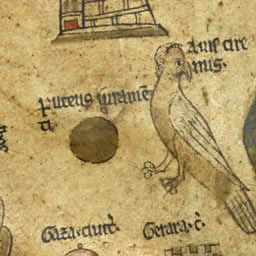 Auis cire
nus.
Puteus iuramē
ti
Gaza · ciuit̄.
Gerara · c̄.